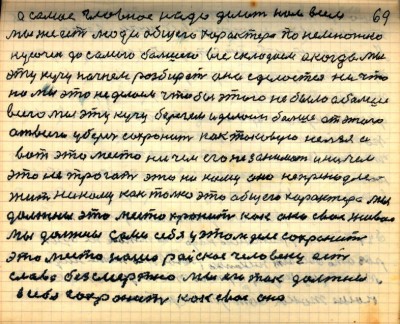 69
а самое главное надо делат нам всем
мы же есть люди общего характера по немножко
кусочек до самого балшего все складаем а когда мы
эту кучу начнем розбират она сделается не что
но мы это не делаем чтобы этого не было а балше
всего мы эту кучу бережем и делаем балше от этого
сохранит как таковую нелзя а
вот это место ни чем его не занимат и ничем
это не трогат это ни кому оно непринадле
жит никому как толко это общего характера мы
должны это место хранит как око свое
мы должны сами себя у этом деле сохранит
это место наше райское человеку ему
слава безсмертно мы ж так должны
себя сохранит как свое око